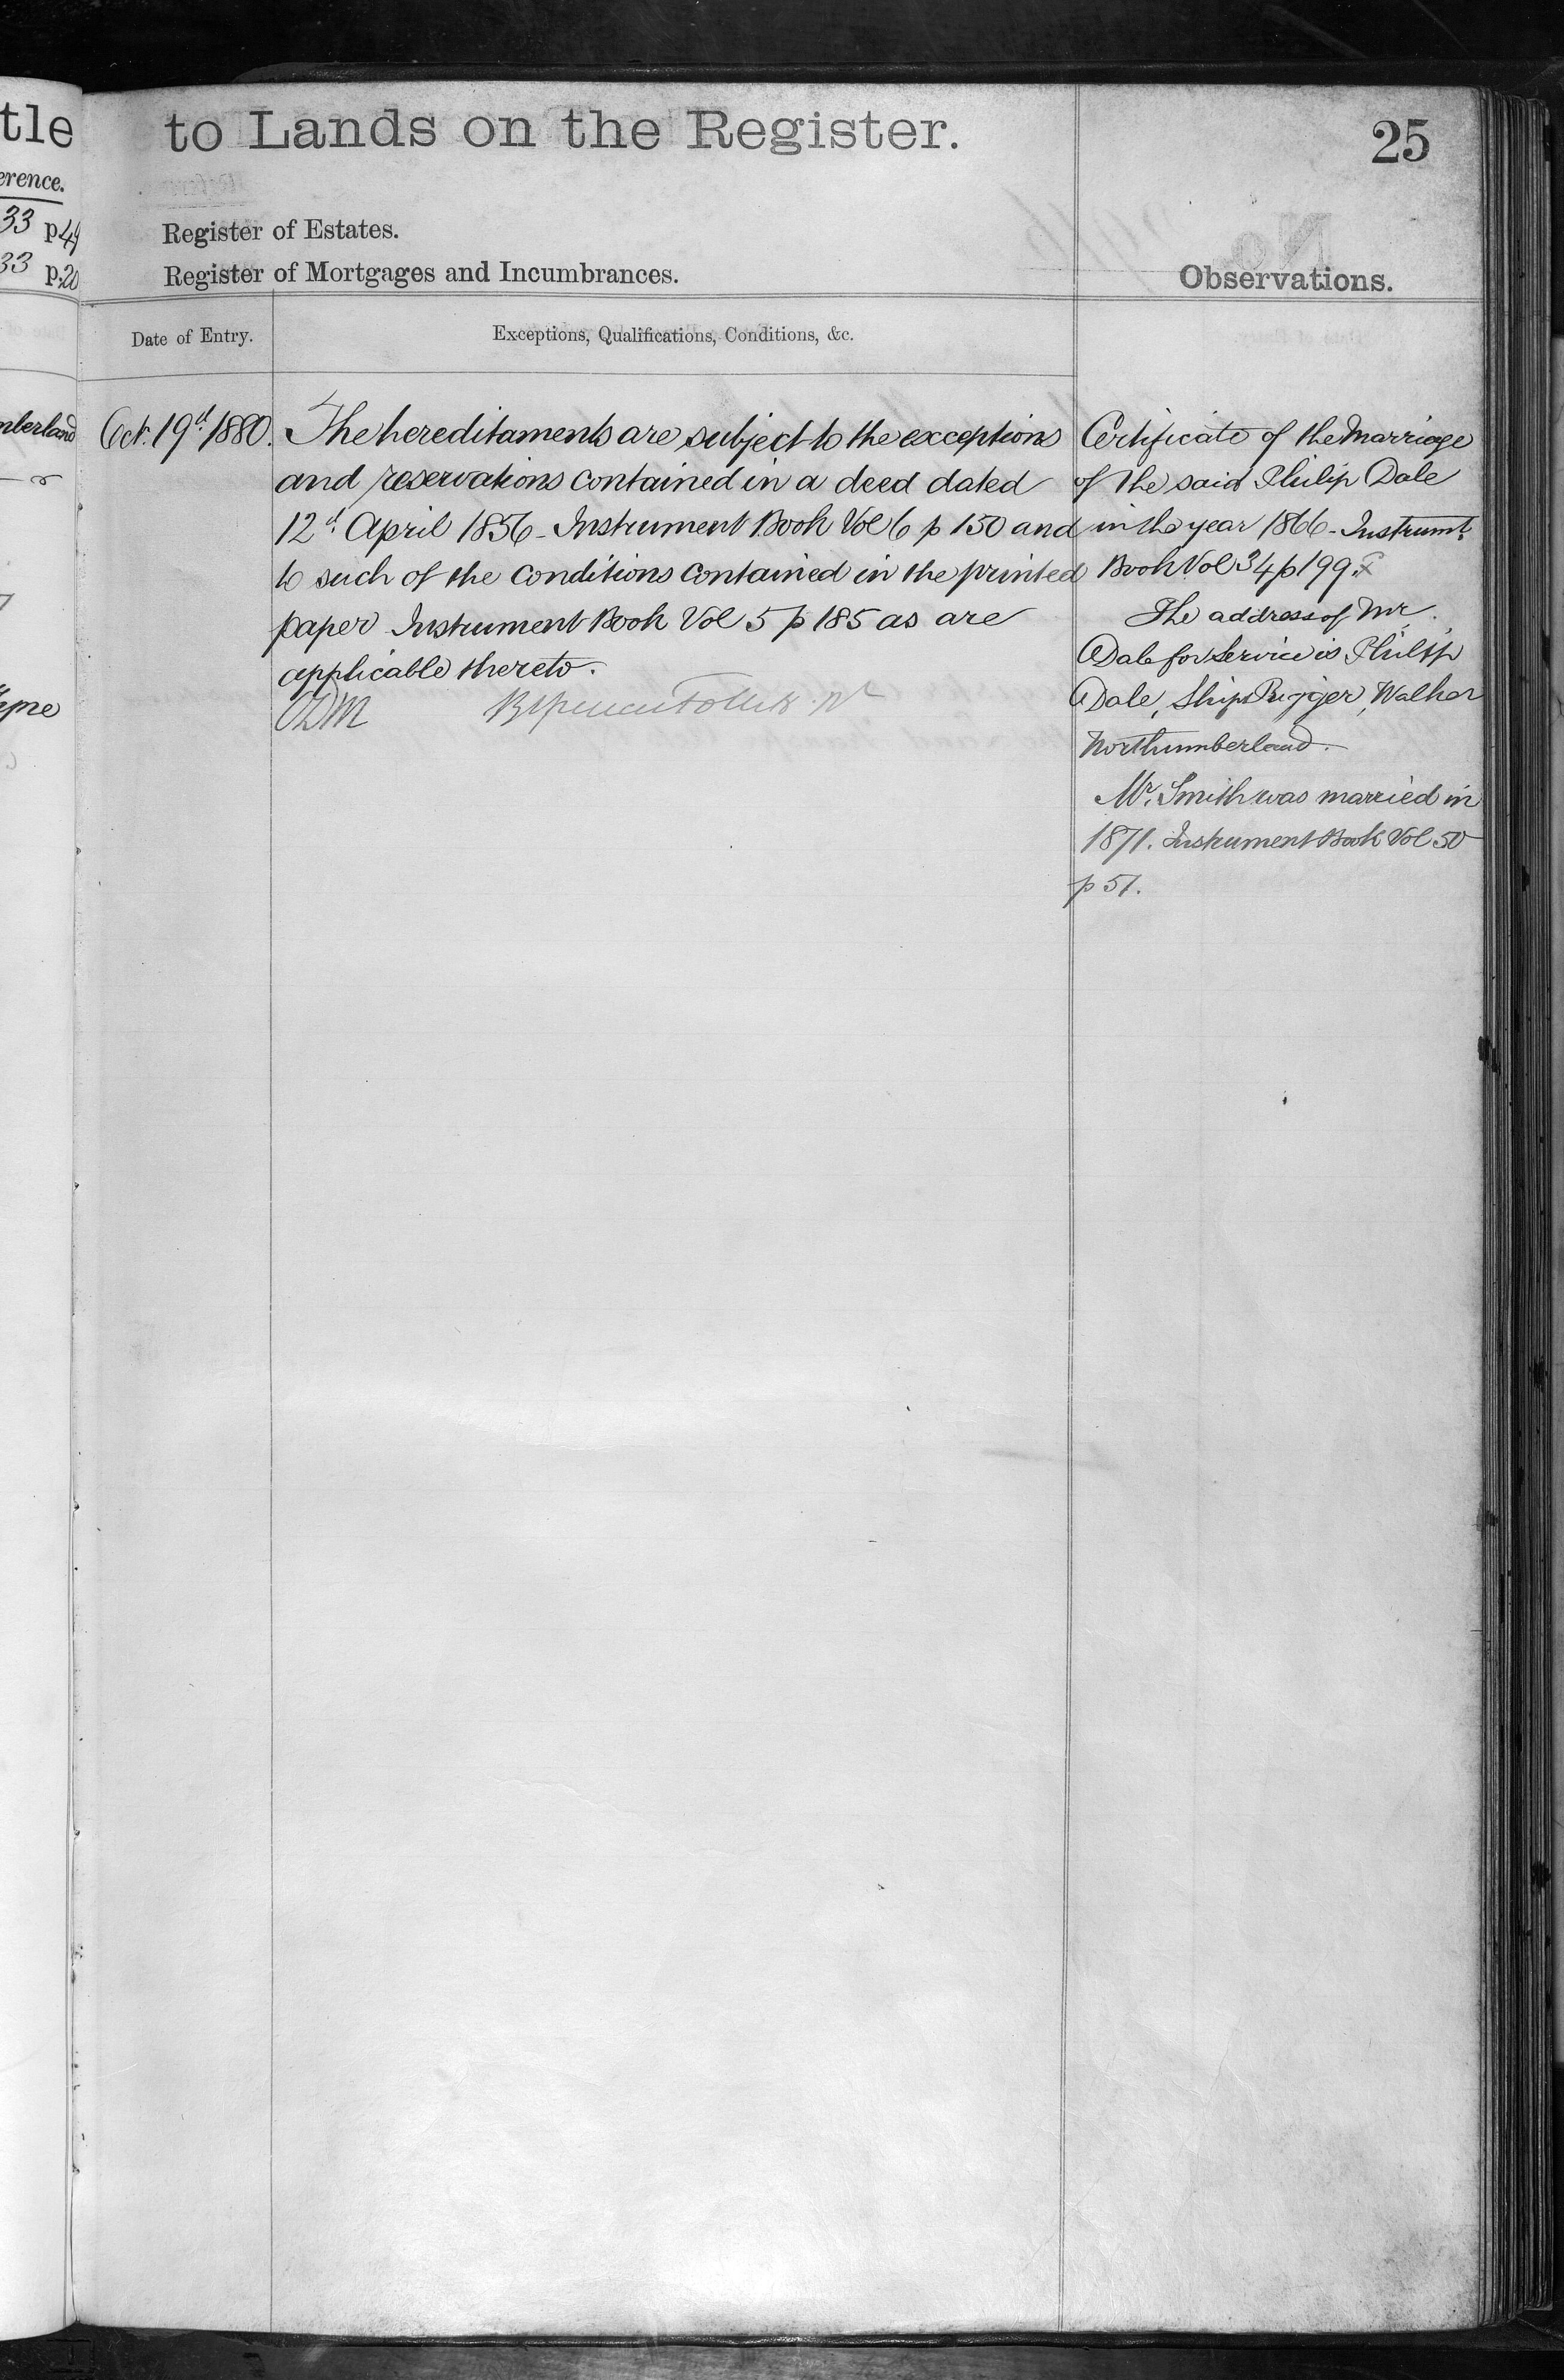 tle
erence.
33 p 49
33 p. 20
mberland
to Lands on the Register.
25
Register of Estates.
Register of Mortgages and Incumbrances.
Observations.
Date of Entry.
Exceptions, Qualifications, Conditions, &c.
Oct. 19th 1880.
The hereditaments are subject to the exceptions
and reservations contained in a deed dated
12th April 1856 - Instrument Book Vol 6 p 150 and
to such of the conditions contained in the printed
paper Instrument Book Vol 5 p 185 as are
applicable thereto.
Certificate of the Marriage
of the said Philip Dale
in the year 1866 - Instrumt.
Book Vol 34 p 199.
The address of Mr.
Dale for Service is Philip
Dale, Ships Rigger, Walker
Northumberland.
Mr. Smith was married in
1871. Instrument Book Vol 50
p 51.